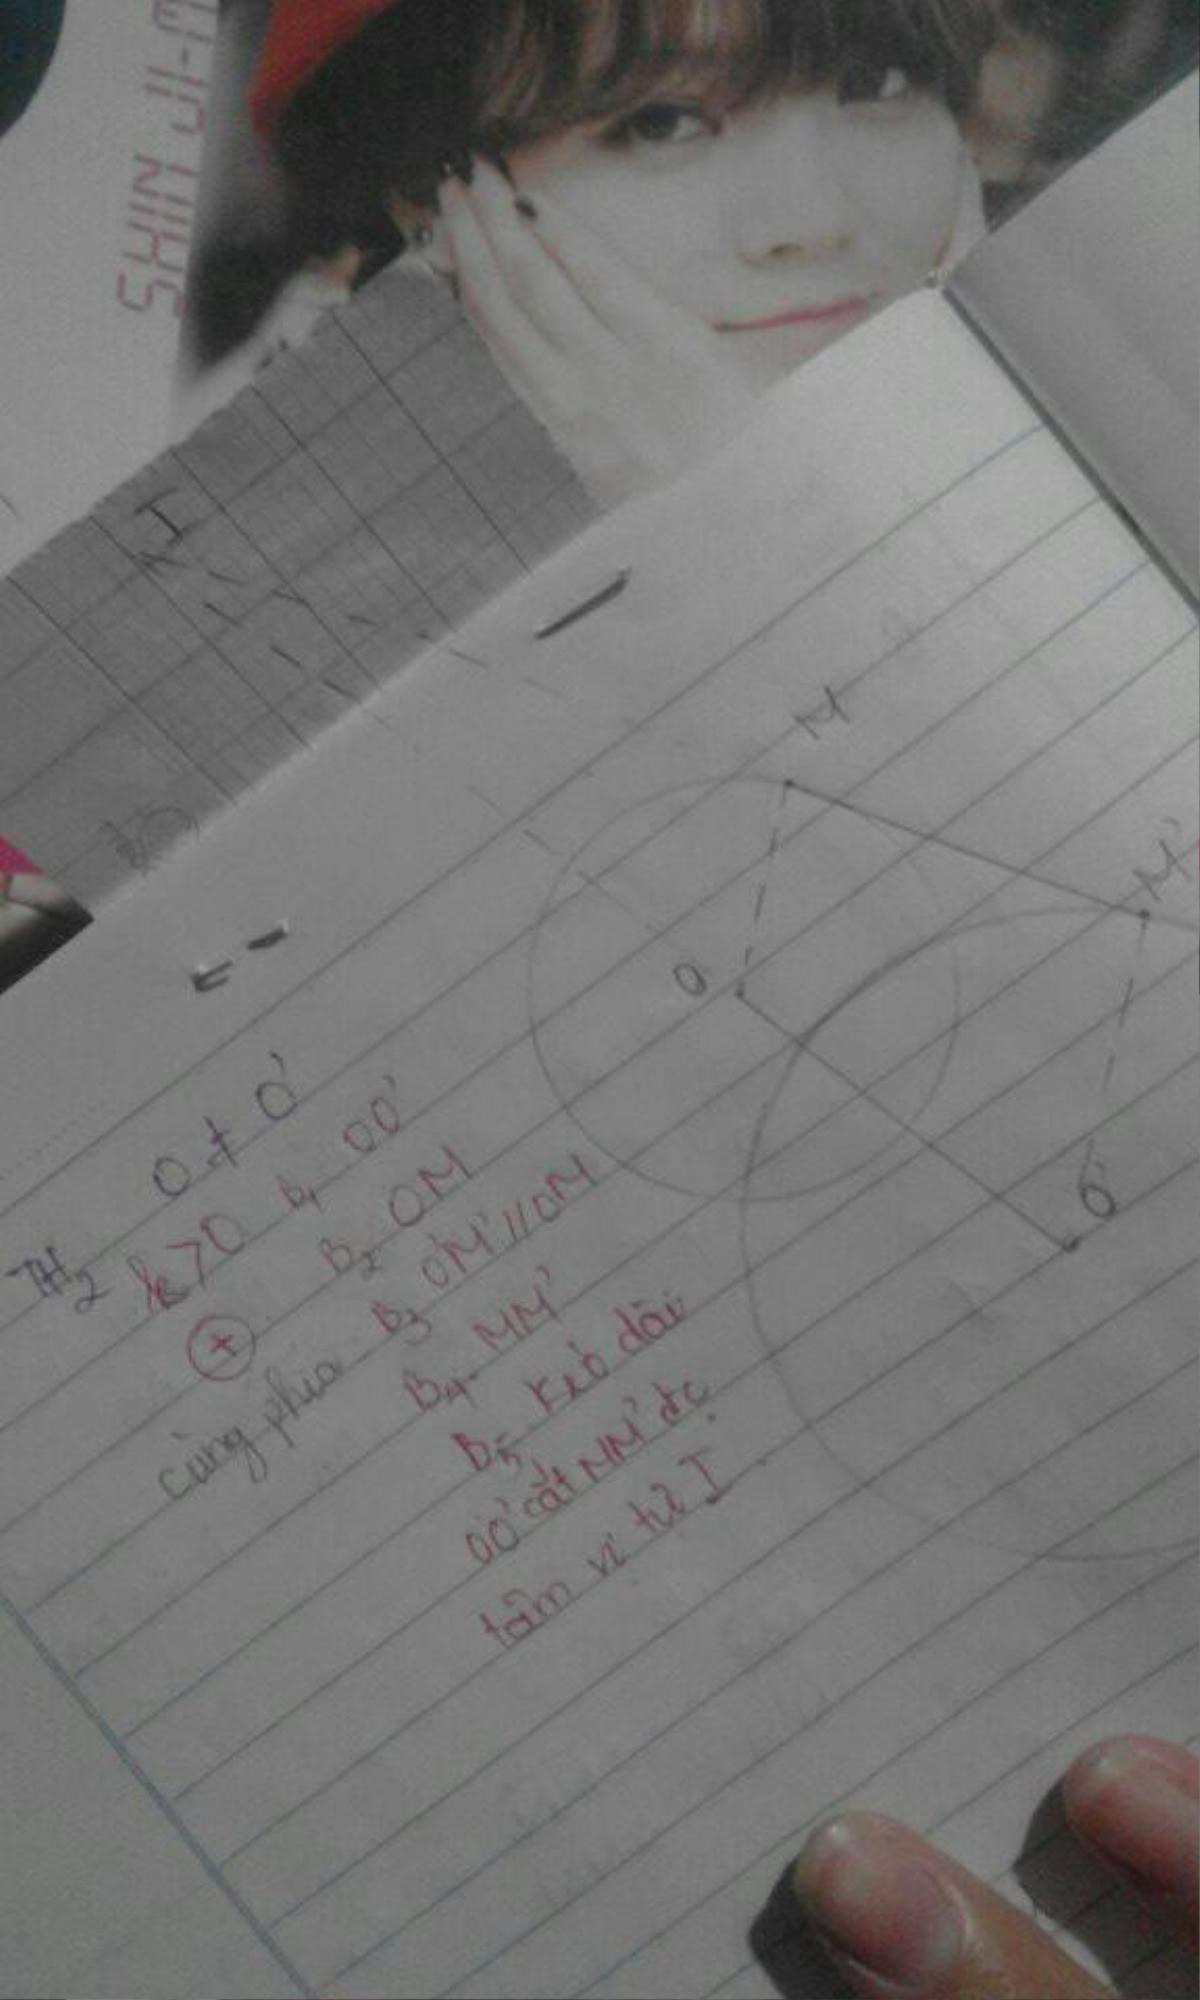 SHIN JI-M
I
M
M'
O
O'
TH2 O ≠ O'
k > 0 B1 OO'
+ B2 OM
cùng phía B3 O'M' // OM
B4 MM'
B5 Kéo dài
OO' cắt MM' đc
tâm vị tự I